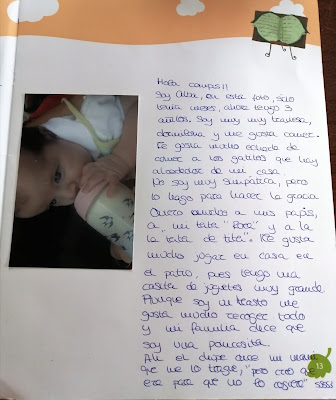 Hola compis!!
Soy Alba, en esta foto, sólo
tenía meses, ahora tengo 3
añitos. Soy muy muy traviesa,
dormilona y me gusta comer.
Me gusta mucho echarle de
comer a los gatitos que hay
alrededor de mi casa.
No soy muy simpatica, pero
lo hago para hacer la gracia
Quiero mucho a mis papis,
a mi tata "Rora" y a la
la teta de tita". Me gusta
mucho jugar en casa en
el patio, pues tengo una
casita de juguetes muy grande.
Aunque soy un trasto me
gusta mucho recoger todo
y mi familia dice que
soy una
Ah el chupe dice mi mami
que me lo trague, "pero creo que
era para que no lo cogiera"
13